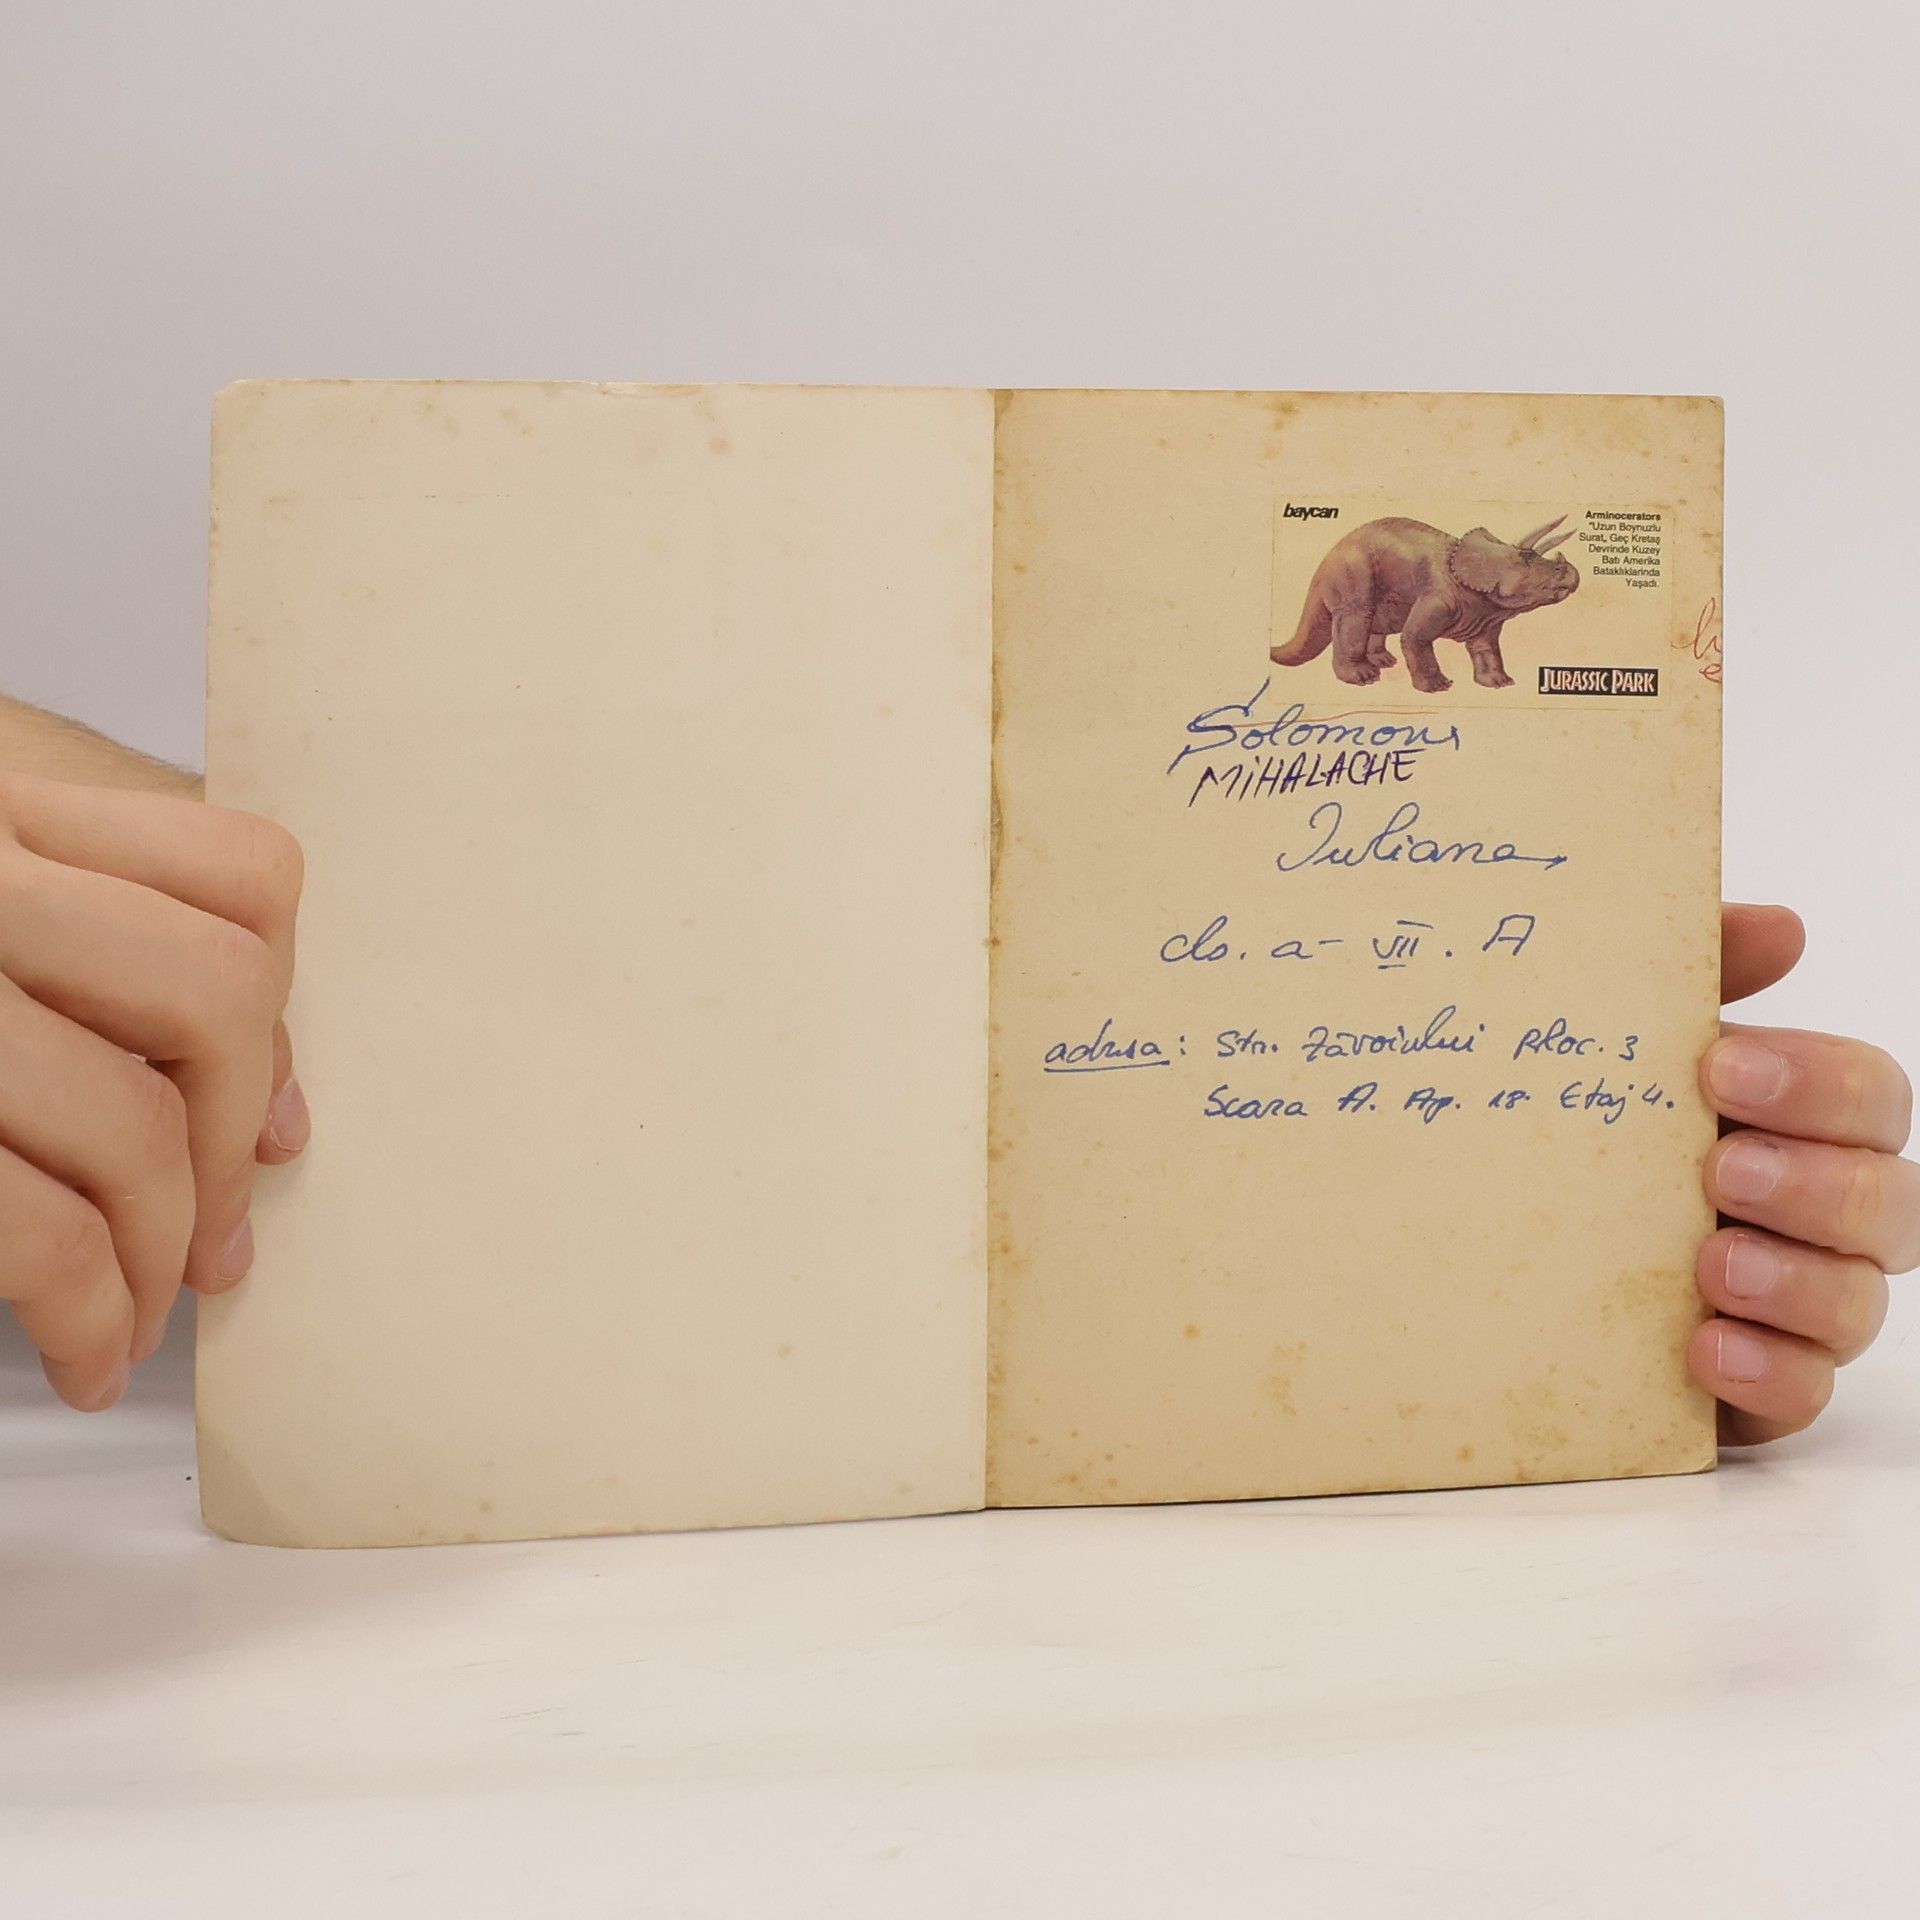 baycan
Arminocerators
"Uzun Boynuzlu
Surat, Geç Kretaş
Devrinde Kuzey
Batı Amerika
Bataklıklarında
Yaşadı.
JURASSIC PARK
Solomon
MIHALACHE
Iuliana
cls. a- VII. A
adresa: Str. Zăvoiului Bloc. 3
Scara A. Ap. 18 Etaj 4.